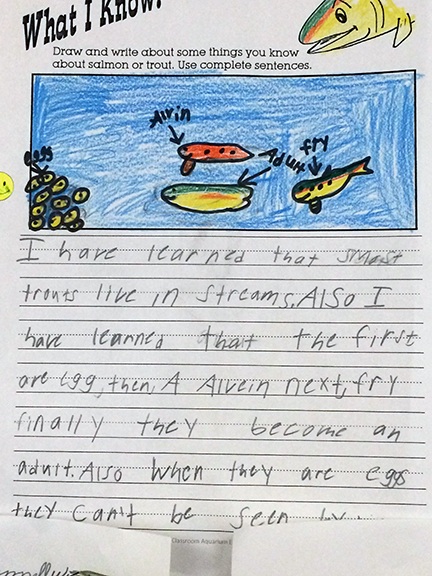 What I Know!
Draw and write about some things you know
about salmon or trout. Use complete sentences.
Alvin
fry
Adult
eggs
I have learned that
trouts live in streams. Also I
have learned that the first
are egg, then, A Alvein next, fry
finally they become an
adult. Also when they are eggs
they can't be seen
Classroom Aquarium